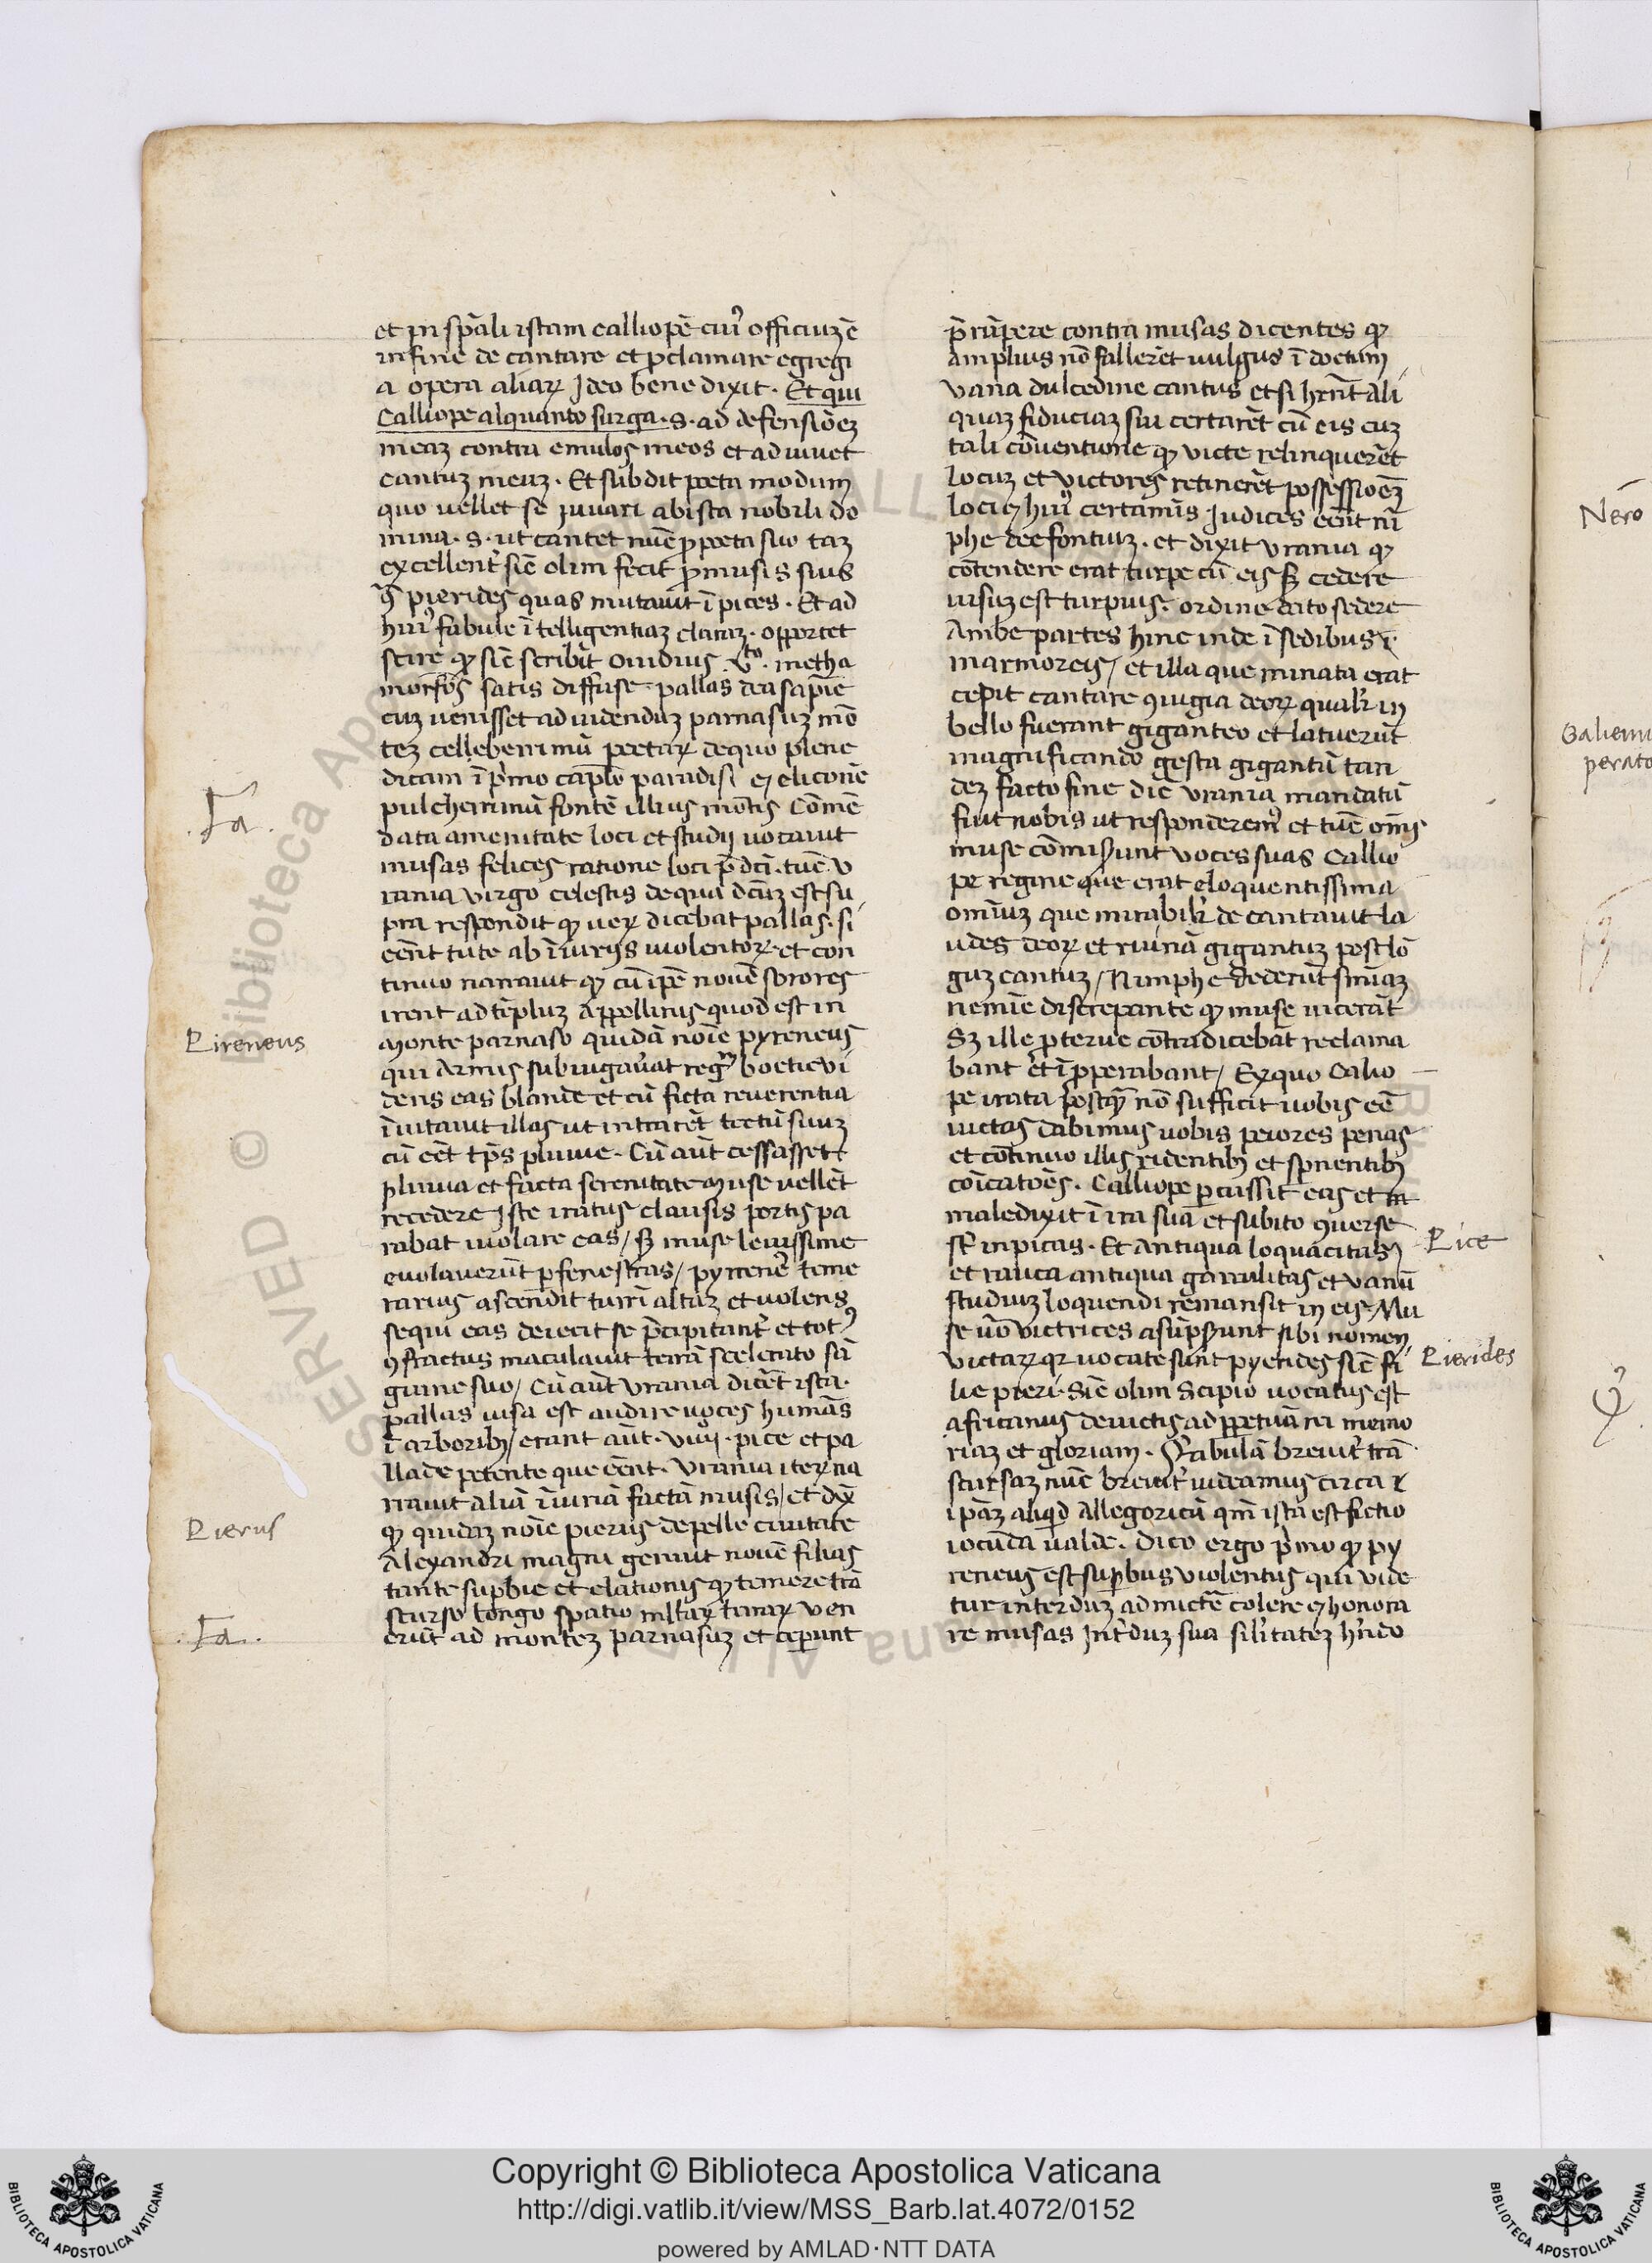 et in spāli istam calliopē cuiꝰ officiuꝫ ē
in fine de cantare et proclamare egregi
a opera aliaꝝ Ideo bene dixit . Et qui
Calliope alquanto surga . s . ad defensiōeꝫ
meaꝫ contra emulos meos et adiuuet
cantuꝫ meuꝫ . Et subdit poeta modum
quo uellet se iuuari ab ista nobili do
mina . s . ut cantet nūc pro poeta suo taꝫ
excellent̉ sic̄ olim fecit pro musis suis
pierides quas mutauit ī pices . Et ad
huiꝰ fabule ītelligentiaꝫ claraꝫ . opportet
scire ꝙ sic̄ scribit Ouidius .Vto. metha
morfos̄ satis diffuse pallas dea sapīe
cuꝫ uenisset ad uidenduꝫ parnasuꝫ mō
teꝫ celleberrimū poetaꝝ de quo plene
dicam ī pͥmo capl̄o paradisi et eliconē
pulcherrimū fontē illius mōtis Comē
data amenitate loci et studij uocauit
musas felices ratione loci p̄dc̄i . tūc V
rania virgo celestis de qua dc̄uꝫ est su
pra respondit ꝙ ueꝝ dicebat pallas . si
eēnt tute ab īiurijs uiolentoꝝ . et con
tinuo narrauit ꝙ cū ipē nouē sorores
irent ad tēpluꝫ Appollinis quod est in
monte parnaso quidā noīe pyreneus
qui armis subiugauāt regnū boetie vi
dens eas blande et cū ficta reuerentia
īuitauit illas ut intrarēt tectū suuꝫ
cū eēt tp̄s pluuie . Cū aūt cessasset
pluuia et facta serenitate muse uellēt
recedere Iste iratus clausis portis pa
rabat uiolare eas / sꝫ muse leuissime
euolauerūt per fenestras / pyreneꝰ teme
rarius ascendit turrī altaꝫ et uolens
sequi eas deiecit se p̄cipitant̉ et totꝰ
ꝯfractus maculauit terrā scelerato sā
guine suo / Cū aūt Vrania dicēt ista .
pallas uisa est audire uoces humās
ī arboribꝫ / erant aūt . viiij . pice et pa
llade petente que eēnt . Vrania iteꝝ na
rrauit aliā īiuriā factā musis / et dix̄
ꝙ quidaꝫ noīe pierius de pelle ciuitate
Alexandri magni genuit nouē filias
tante supbie et elationis ꝙ temere trā
scurso longo spatio mltaꝝ terraꝝ ven
erūt ad monteꝫ parnasuꝫ et ceperunt
p̄rūpere contra musas dicentes ꝙ
amplius nō fallerēt uulgus īdoctum
vana dulcedine cantus et si hr̄ent ali
quaꝫ fiduciaꝫ sui certarēt cū eis cuꝫ
tali conuentione ꝙ victe relinquerēt
locuꝫ et victores retinerēt possessiōeꝫ
loci et huiꝰ certaminis Judices eēnt nī
phe dee fontiuꝫ . et dixit Vrania ꝙ
contendere erat turpe cū eis sꝫ cedere
uisuꝫ est turpius . ordine dato sedere
Ambe partes hinc inde ī sedibus
marmoreis / et illa que minata erat
cepit cantare ꝯiugia deoꝝ qualr̄ in
bello fuerant giganteo et latuerūt
magnificando gesta gigantū tan
deꝫ facto fine dic̄ Vrania mandatū
fuit nobis ut responderemꝰ et tūc om̄s
muse comiserunt voces suas Callio
pe regine que erat eloquentissima
omniuꝫ que mirabilr̄ de cantauit la
udes deoꝝ et ruinā gigantuꝫ post lō
guꝫ cantuꝫ / Nimphe dederūt snīaꝫ
nemīe discrepante ꝙ muse uicerāt
Sꝫ ille proterue contradicebāt reclama
bant et īproperabant / Ex quo Calio
pe irata postꝙ nō sufficit uobis eē
uictas dabimus uobis peiores penas
et continuo illis ridentibꝫ et spnentibꝫ
coīcatoēs . Calliope percussit eas et
maledixit ī ira sua et subito ꝯuerse
st̄ in picas . Et antiqua loquacitas
et rauca antiqua garrulitas et vanū
studiuꝫ loquendi remansit in eis Mu
se uō victrices asūpserunt sibi nomen
victaꝝ qꝛ uocate sunt pyerides sic̄ fi
lie pieri . Sic̄ olim Scipio uocatus est
africanus deuictis ad ppetuā rei memo
riaꝫ et gloriam . Fabulā breuit̉ trā
scursaꝫ nūc breuit̉ uideamus circa
ipāꝫ aliquid allegoricū qm̄ ista est fictio
iocunda ualde . Dico ergo pͥmo ꝙ py
reneus est supbus violentus qui vide
tur interduꝫ ad mictē colere et honora
re musas Int̉duꝫ sua silitateꝫ h̄ndo
.Fa.
Pireneus
Pierus
.Fa.
Pice
Pierides
Nero
Galienu
perato
Copyright © Biblioteca Apostolica Vaticana
http://digi.vatlib.it/view/MSS_Barb.lat.4072/0152
powered by AMLAD·NTT DATA
BIBLIOTECA APOSTOLICA VATICANA
BIBLIOTECA APOSTOLICA VATICANA